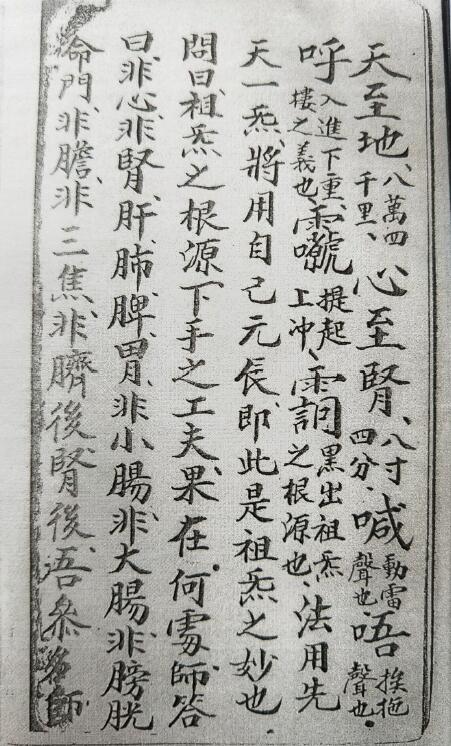 天至地、八萬四千里、心至腎、八寸四分、喊動雷聲也、唔挨拖聲也、
呼入進下重、樓之義也、提起上冲、黑出祖炁之根源也、法用先
天一炁、將用自己元辰、即此是祖炁之妙也
問曰、祖炁之根源下手之工夫、果在何處、師答
曰、非心、非腎、肝、肺、脾、胃、非小腸、非大腸、非膀胱
命門、非膽、非三焦、非臍後、腎後、吾叅名師